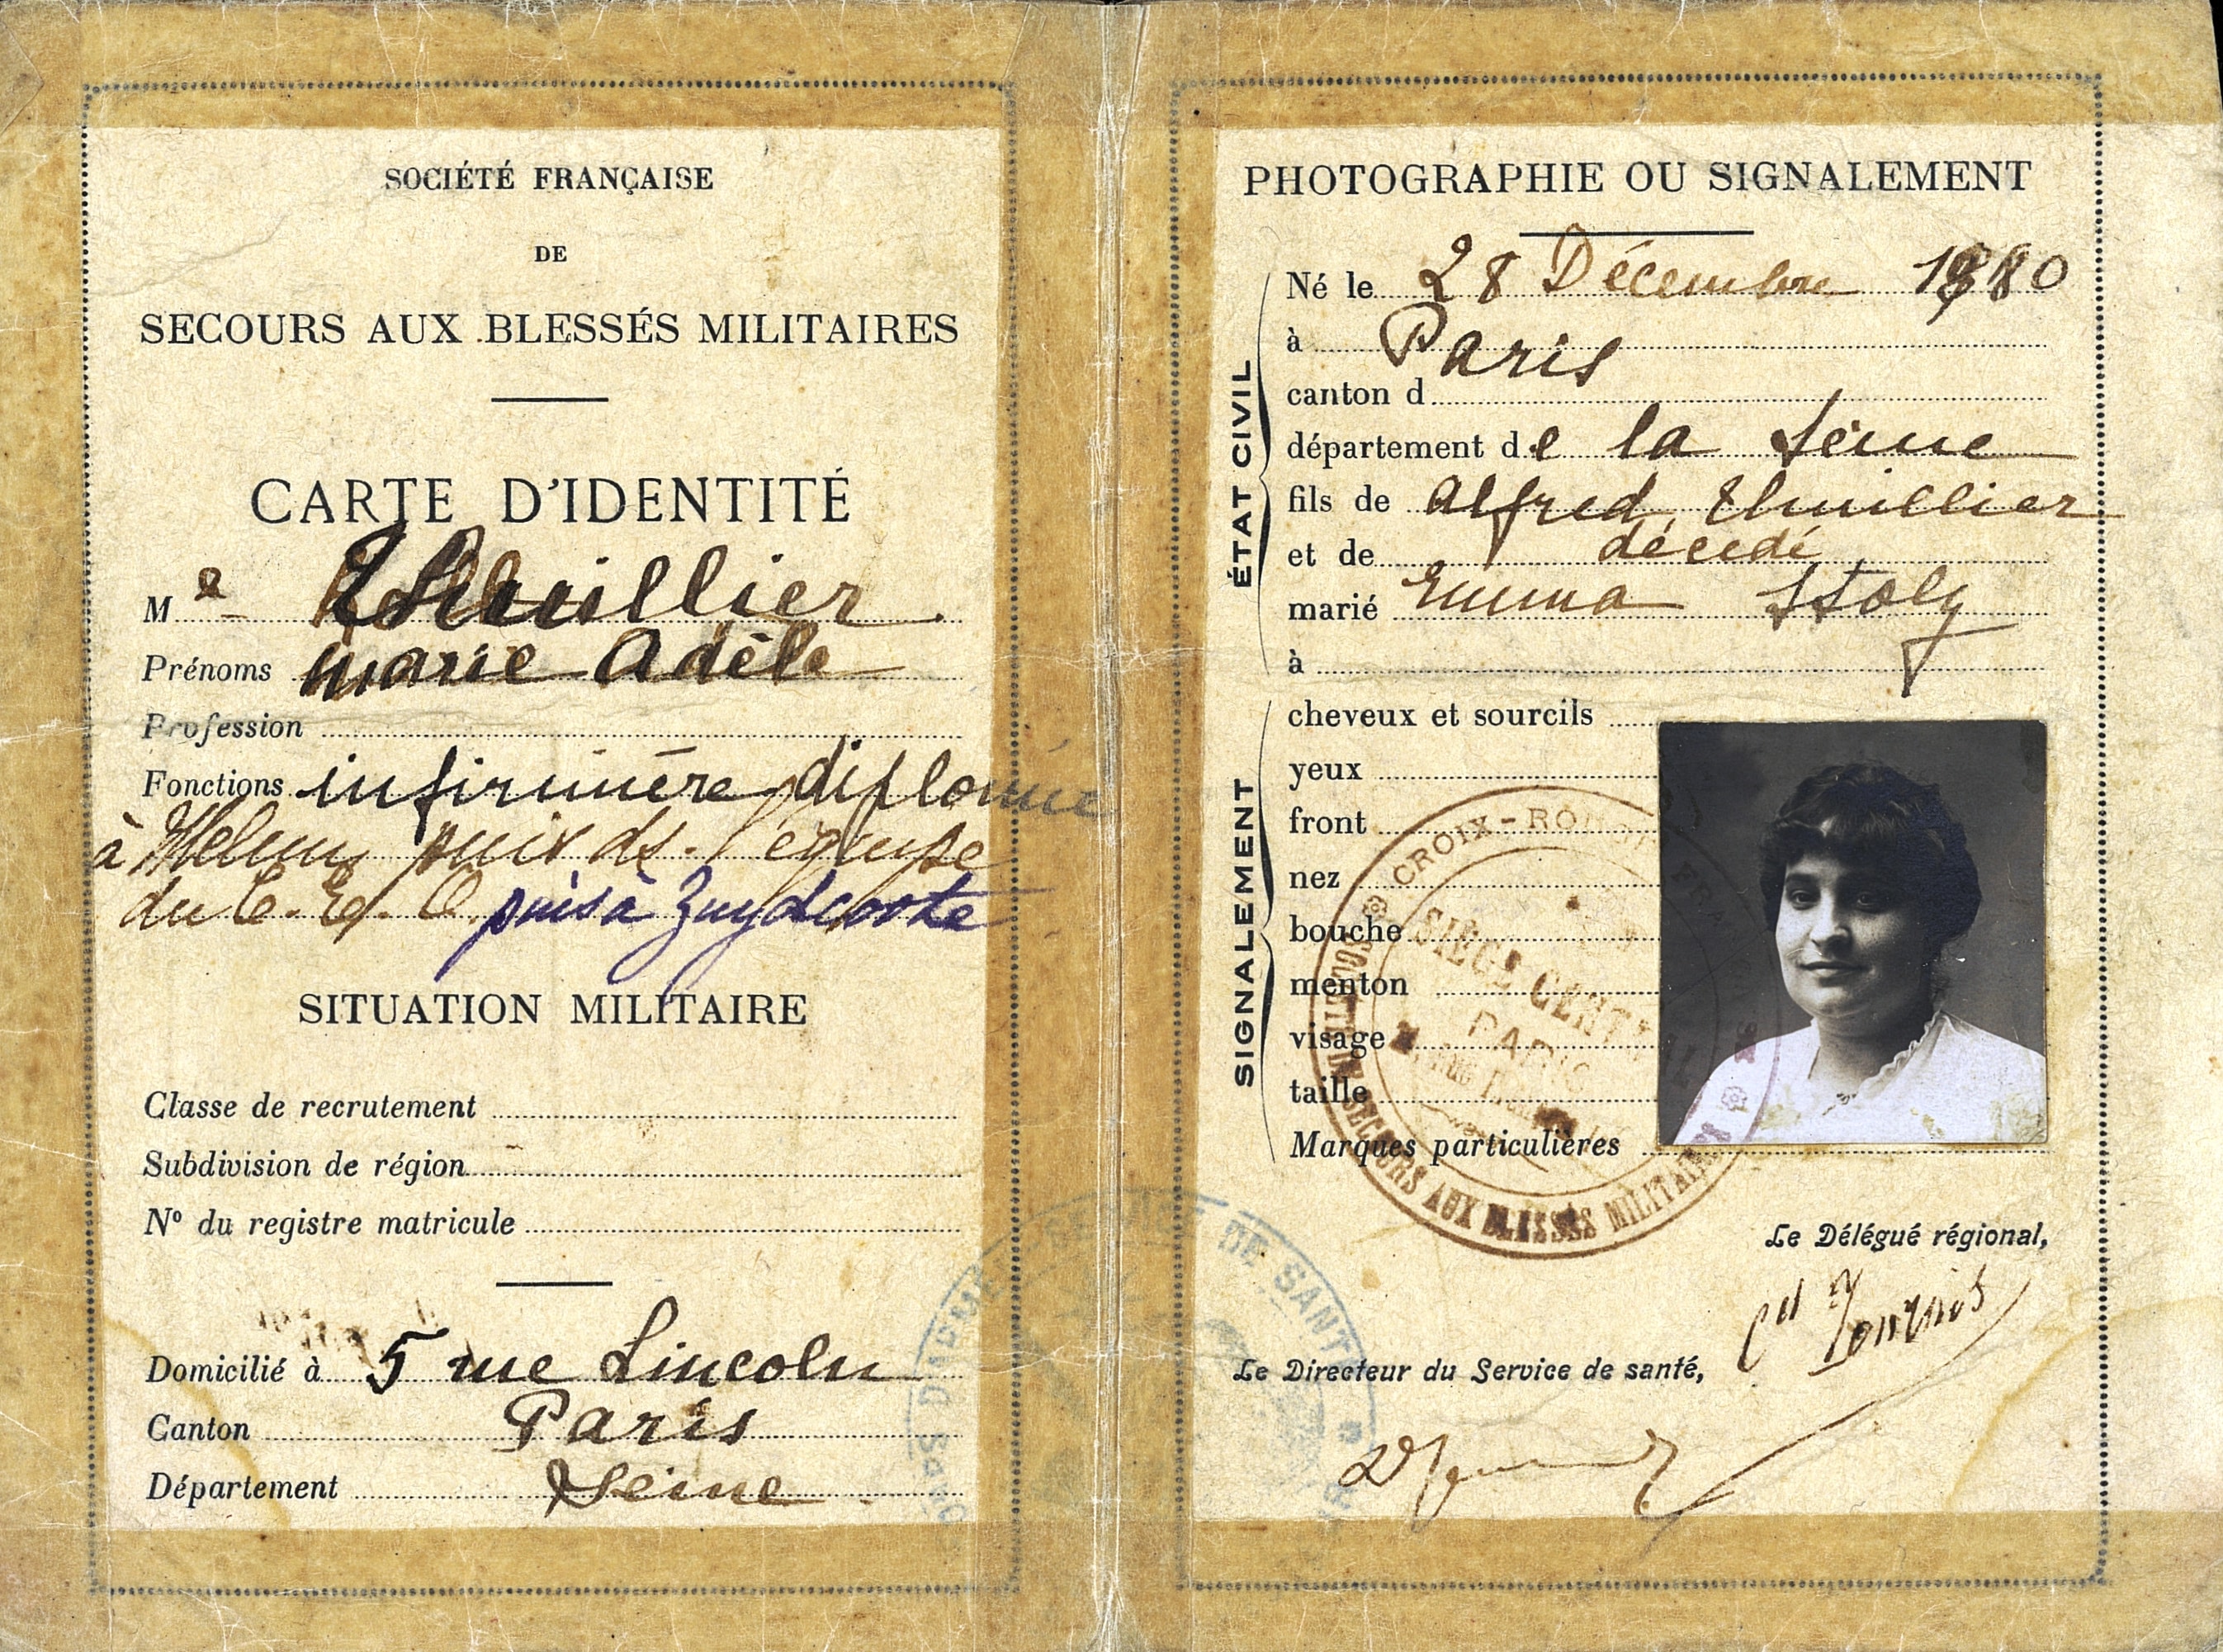 SOCIÉTÉ FRANÇAISE
DE
SECOURS AUX BLESSÉS MILITAIRES
CARTE D'IDENTITÉ
M e Thuillier
Prénoms Marie Adèle
Profession
Fonctions infirmière diplomée
à Melun puis ds. l'équipe
du C. E. O. puis à Zuydcoote
SITUATION MILITAIRE
Classe de recrutement
Subdivision de région
No du registre matricule
Domicilié à 5 rue Lincoln
Canton Paris
Département Seine
PHOTOGRAPHIE OU SIGNALEMENT
ÉTAT CIVIL
Né le 28 Décembre 1880
à Paris
canton d
département de la Seine
fils de Alfred Thuillier
décédé
et de
marié Emma
à
SIGNALEMENT
cheveux et sourcils
yeux
front
nez
bouche
menton
visage
taille
Marques particulières
CROIX-ROUGE FRA
SIÈGE CENTRAL
PARIS
SECOURS AUX BLESSÉS MILITAIR
Le Délégué régional,
Le Directeur du Service de santé,
DE SANTÉ